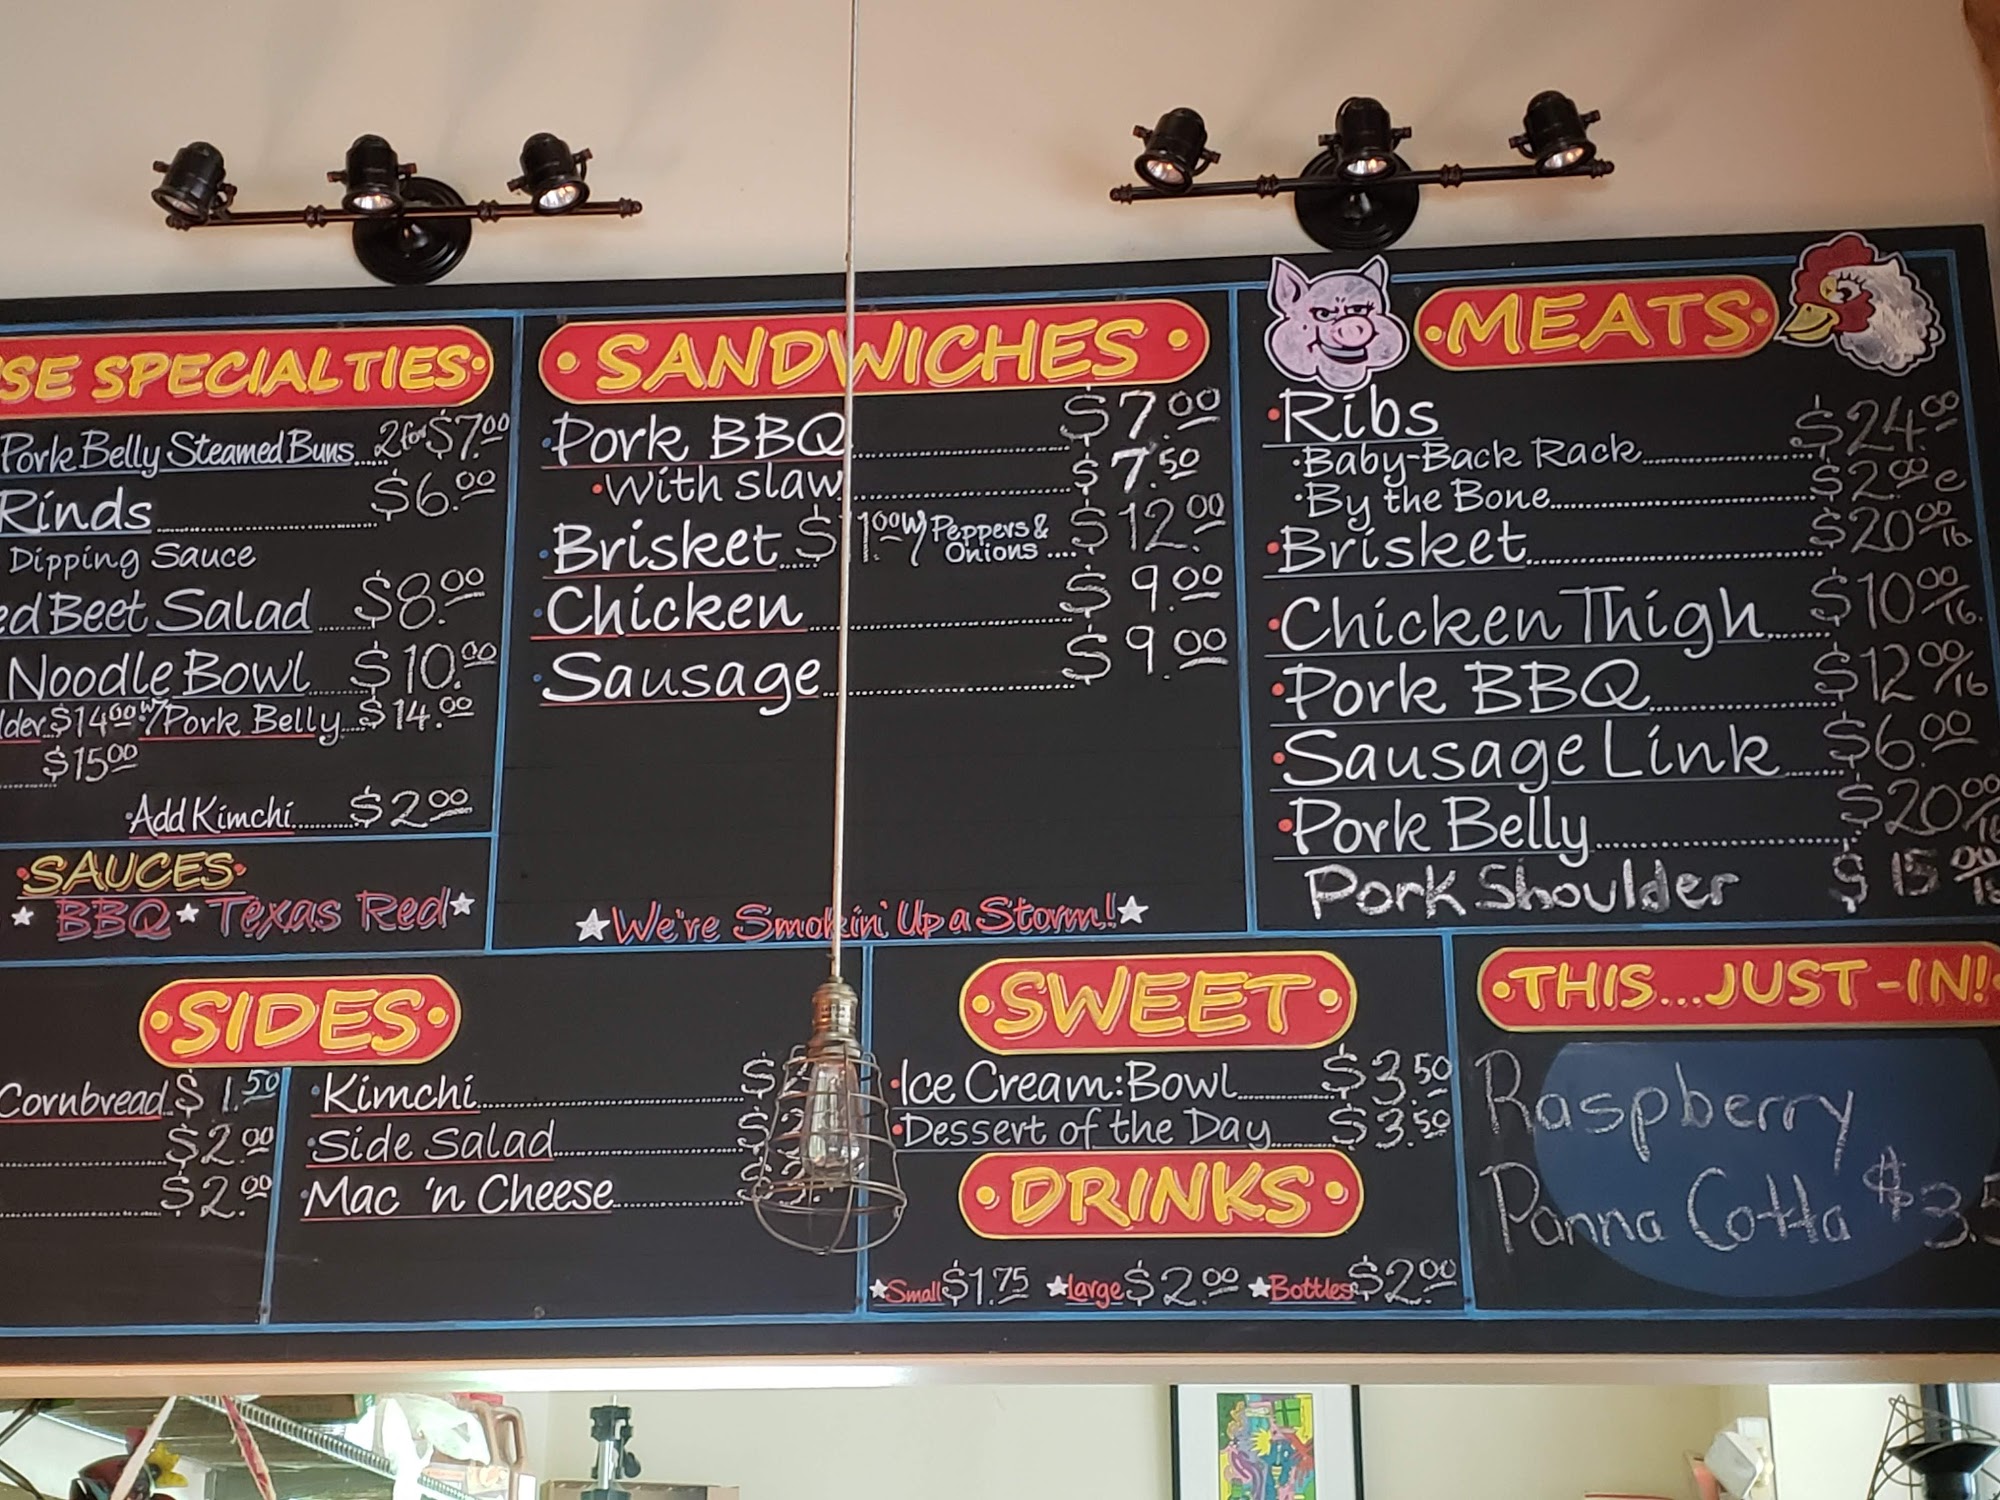 SE SPECIALTIES
Pork Belly Steamed Buns 2 for $7.00
Rinds $6.00
Dipping Sauce
ed Beet Salad $8.00
Noodle Bowl $10.00
lder $14.00 w/ Pork Belly $14.00
$15.00
Add Kimchi $2.00
SAUCES
BBQ Texas Red
SANDWICHES
Pork BBQ $7.00
With slaw $7.50
Brisket $11.00 w/ Peppers & Onions $12.00
Chicken $9.00
Sausage $9.00
We're Smokin' Up a Storm!
MEATS
Ribs
Baby-Back Rack $24.00
By the Bone $2.00 e
Brisket $20.00/16
Chicken Thigh $10.00/16.
Pork BBQ $12.00/16
Sausage Link $6.00
Pork Belly $20.00/16
Pork Shoulder $15.00
SIDES
Cornbread $1.50
$2.00
$2.00
Kimchi
Side Salad
Mac 'n Cheese
SWEET
Ice Cream: Bowl $3.50
Dessert of the Day $3.50
DRINKS
Small $1.75 Large $2.00 Bottles $2.00
THIS...JUST-IN!
Raspberry
Panna Cotta $3.5